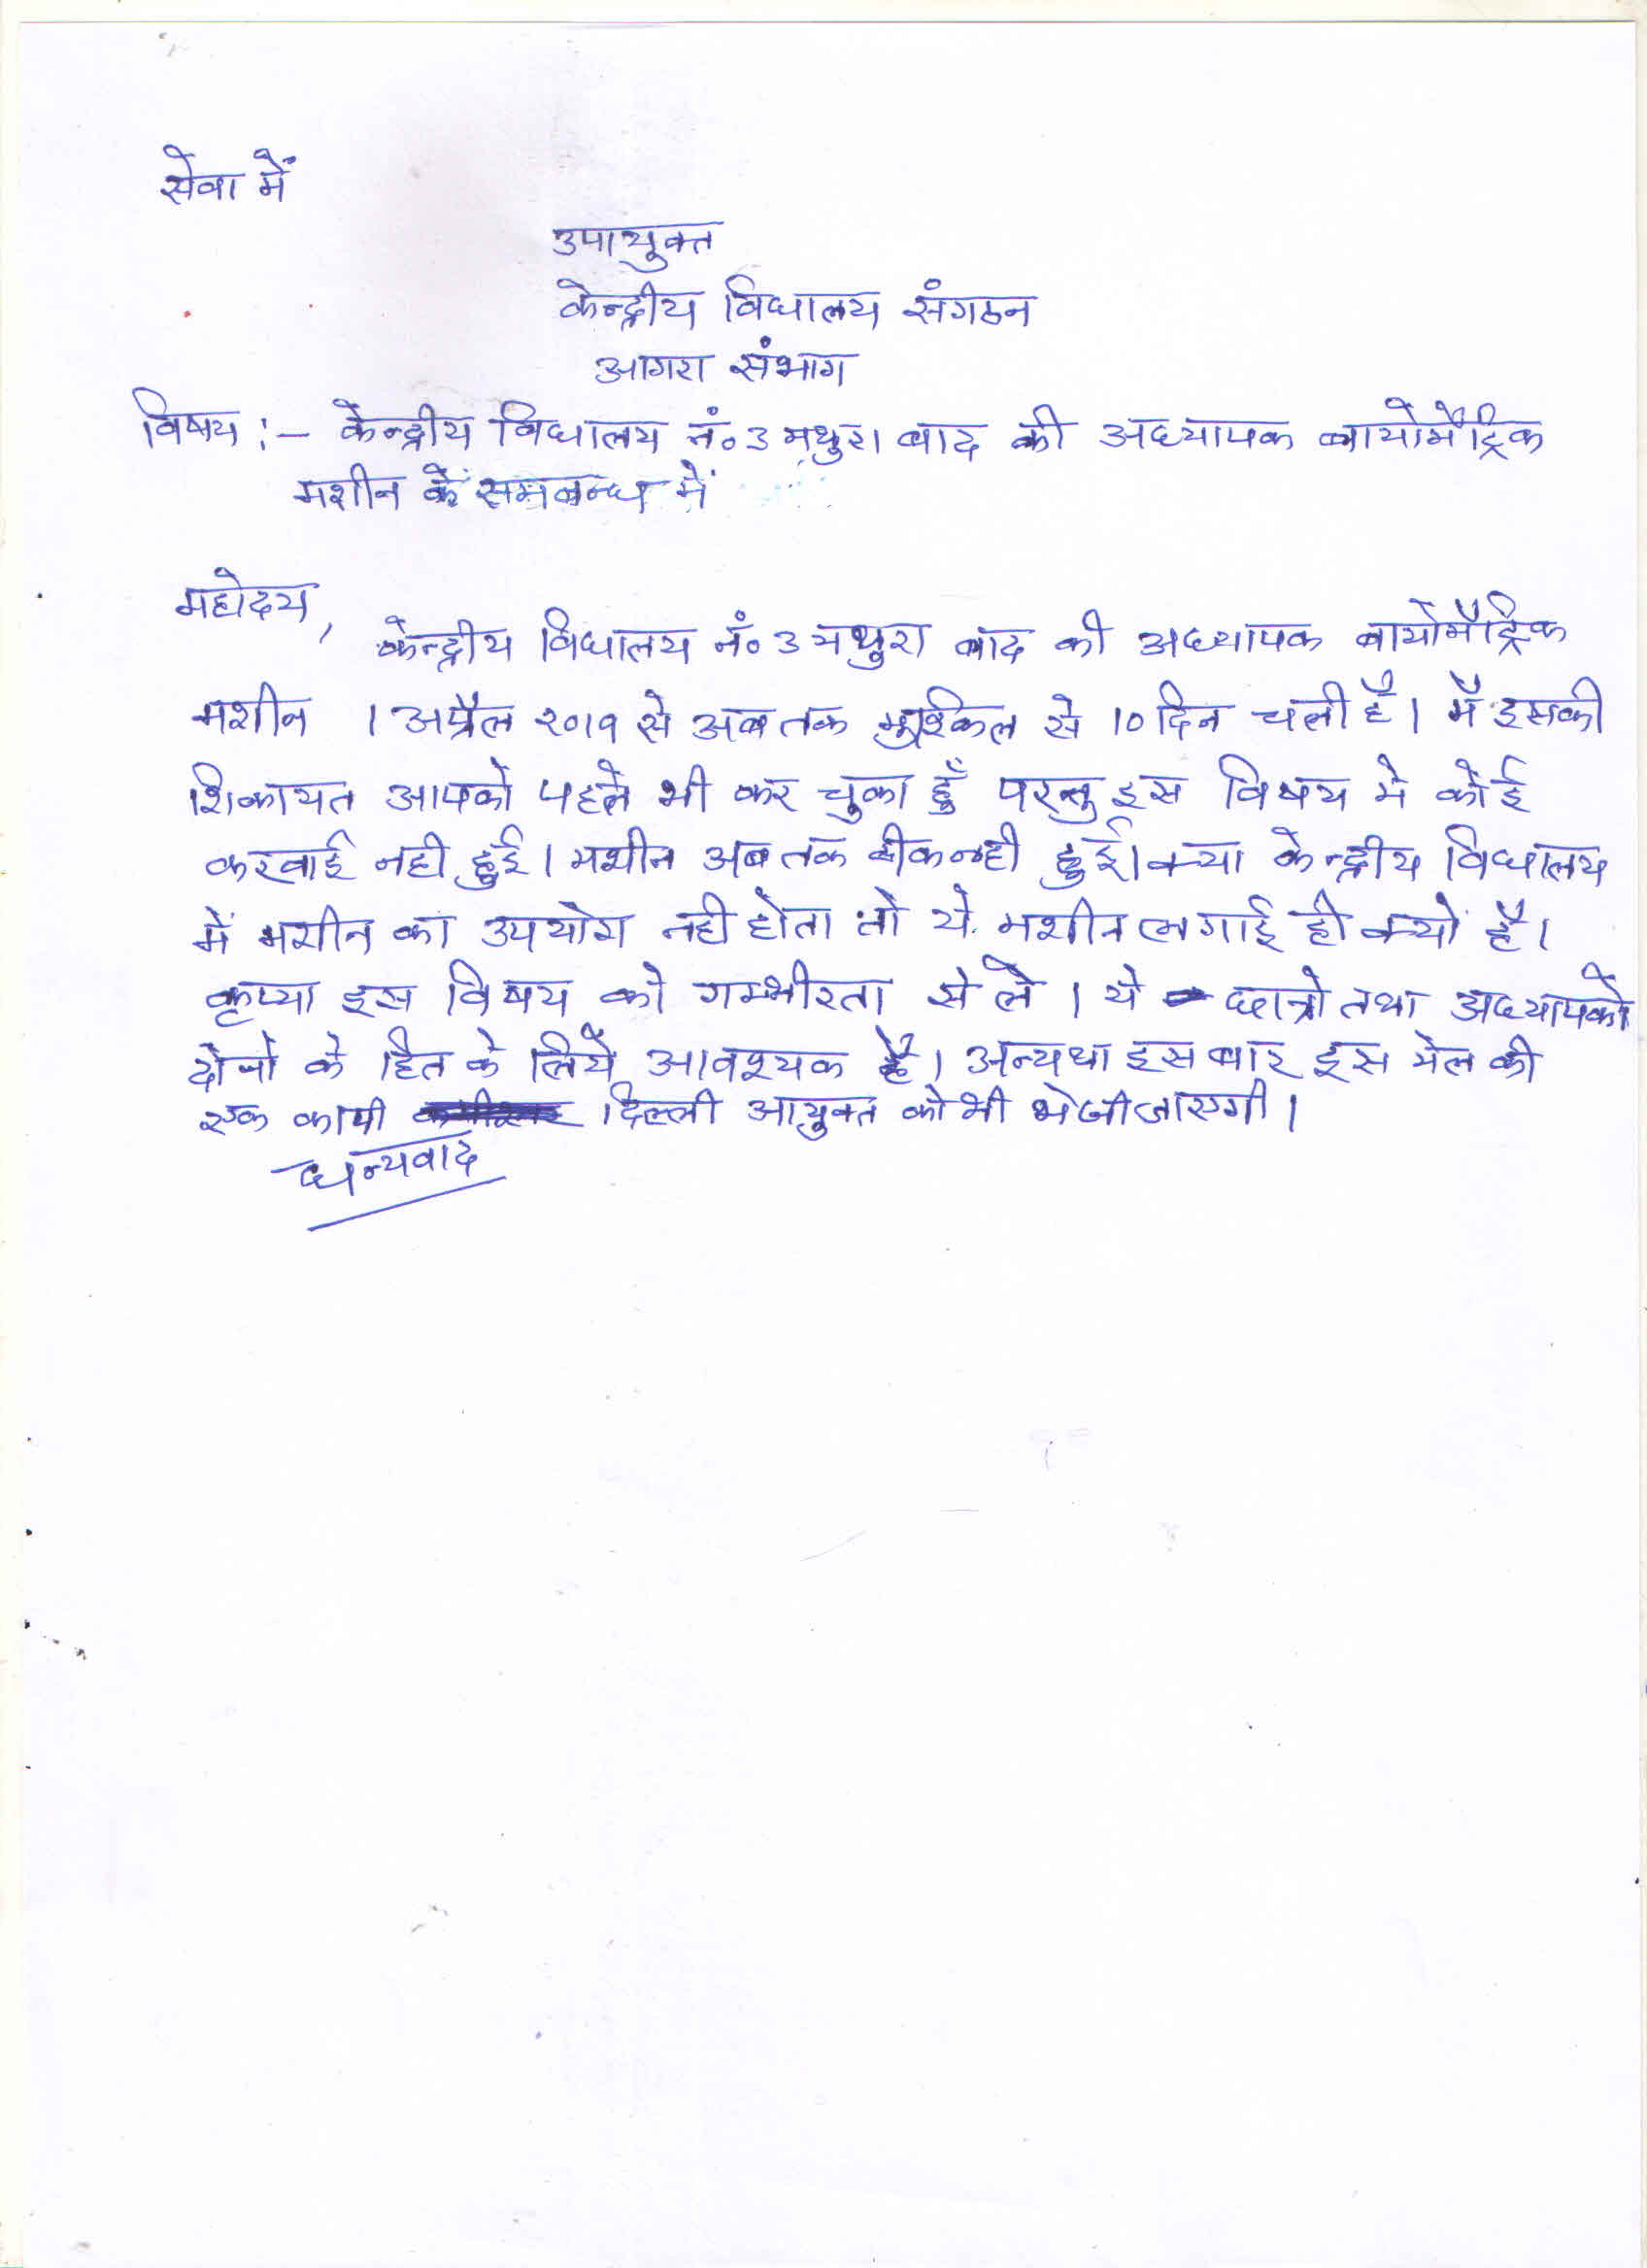 सेवा में
उपायुक्त
केन्द्रीय विधालय संगठन
आगरा संभाग
विषय :- केन्द्रीय विधालय नं० 3 मथुरा बाद की अध्यापक बायोमैट्रिक
मशीन के समबन्ध में
महोदय,
केन्द्रीय विधालय नं० 3 मथुरा बाद की अध्यापक बायोमैट्रिक
मशीन 1 अप्रैल २०१९ से अब तक मुश्किल से 10 दिन चली है। मै इसकी
शिकायत आपको पहले भी कर चुका हुँ परन्तु इस विषय मे कोई
करवाई नही हुई। मशीन अब तक ठीक नही हुई। क्या केन्द्रीय विधालय
में मशीन का उपयोग नही होता तो ये मशीन लगाई ही क्यो है।
कृप्या इस विषय को गम्भीरता से ले। ये छात्रो तथा अध्यापको
दोनो के हित के लिये आवश्यक है। अन्यथा इस बार इस मेल की
एक कापी दिल्ली आयुक्त को भी भेजी जाएगी।
धन्यवाद